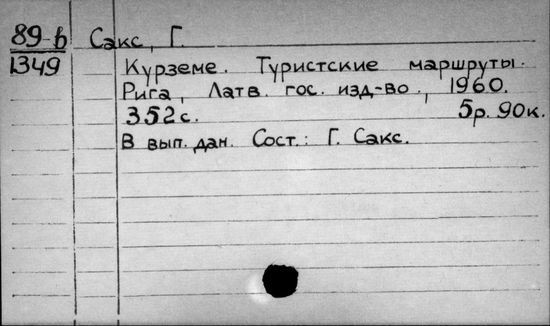 89-b Сакс, Г.
1349 Курземе. Туристские маршруты.
Рига, Латв. гос. изд-во, 1960.
352с. 5р. 90к.
В вып. дан. Сост.: Г. Сакс.